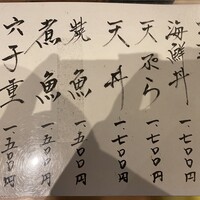 海鮮丼 一、七〇〇円
天ぷら 一、七〇〇円
天丼 一、七〇〇円
焼魚 一、五〇〇円
煮魚 一、五〇〇円
穴子重 一、五〇〇円